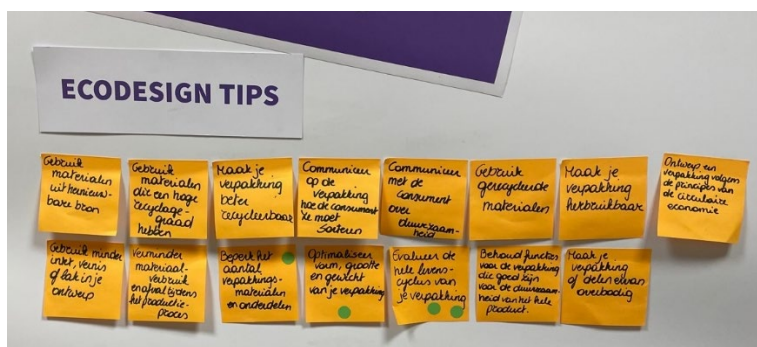 ECODESIGN TIPS
Gebruik
materialen
uit hernieuw-
bare bron
Gebruik
materialen
die een hoge
recyclage-
graad
hebben
Maak je
verpakking
beter
recycleerbaar
Communiceer
op de
verpakking
hoe de consument
ze moet
sorteren
Communiceer
met de
consument
over
duurzaam-
heid
Gebruik
gerecycleerde
materialen
Maak je
verpakking
herbruikbaar
Ontwerp een
verpakking volgens
de principes van
de circulaire
economie
Gebruik minder
inkt, vernis
of lak in je
ontwerp
Verminder
materiaal-
verbruik
en afval tijdens
het productie-
proces
Beperk het
aantal
verpakkings-
materialen
en onderdelen
Optimaliseer
vorm, grootte
en gewicht
van je verpakking
Evalueer de
hele levens-
cyclus van
je verpakking
Behoud functies
voor de verpakking
die goed zijn
voor de duurzaam-
heid van het hele
product.
Maak je
verpakking
of delen ervan
overbodig